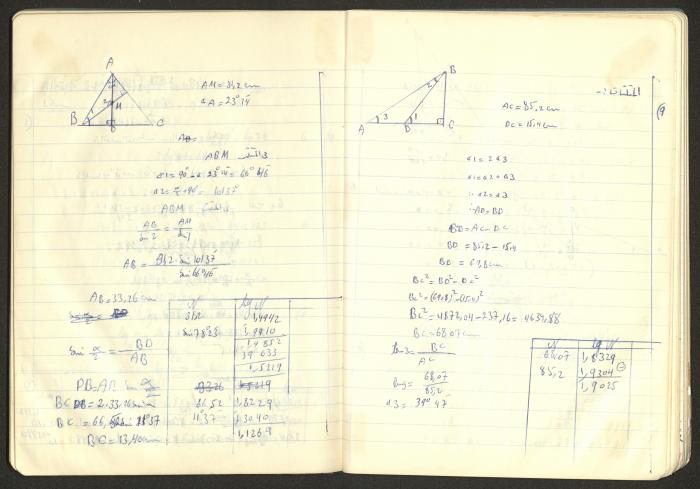 A
B
C
D
M
AM = 31,2 cm
∢A = 23° 14'
ABM
∢1 = 90° - ∢A 23° 14' = 66° 46'
∢2 = α/2 + 90° = 101° 37'
ABM
AB / sin 2 = AM / sin 1
AB = 31,2 · sin 101 37 / sin 66° 46'
AB = 33,26 cm
sin α/2 = BD / AB
DB = AB sin α/2
BC = 2·33,26 sin α
BC = 66,52 sin 11° 37
BC = 13,40 cm
N
lg N
31,2
1,4942
sin 78° 23
1,9910
1,4852
1,5219
66,52
1,8229
11° 37'
1,3040
1,1269
B
A
D
C
9)
AC = 85,2 cm
DC = 15,4 cm
∢1 = 2∢3
∢1 = ∢2 + ∢3
∴ ∢2 = ∢3
∴ AD = BD
BD = AC - DC
BD = 85,2 - 15,4
BD = 69,8 cm
BC² = BD² - DC²
BC² = (69,8)² - (15,4)²
BC² = 4872,04 - 237,16 = 4634,88
BC = 68,07 cm
tan 3 = BC / AC
tan 3 = 68,07 / 85,2
∢3 = 39° 47'
N
lg N
68,07
1,8329
85,2
1,9304
1,9025